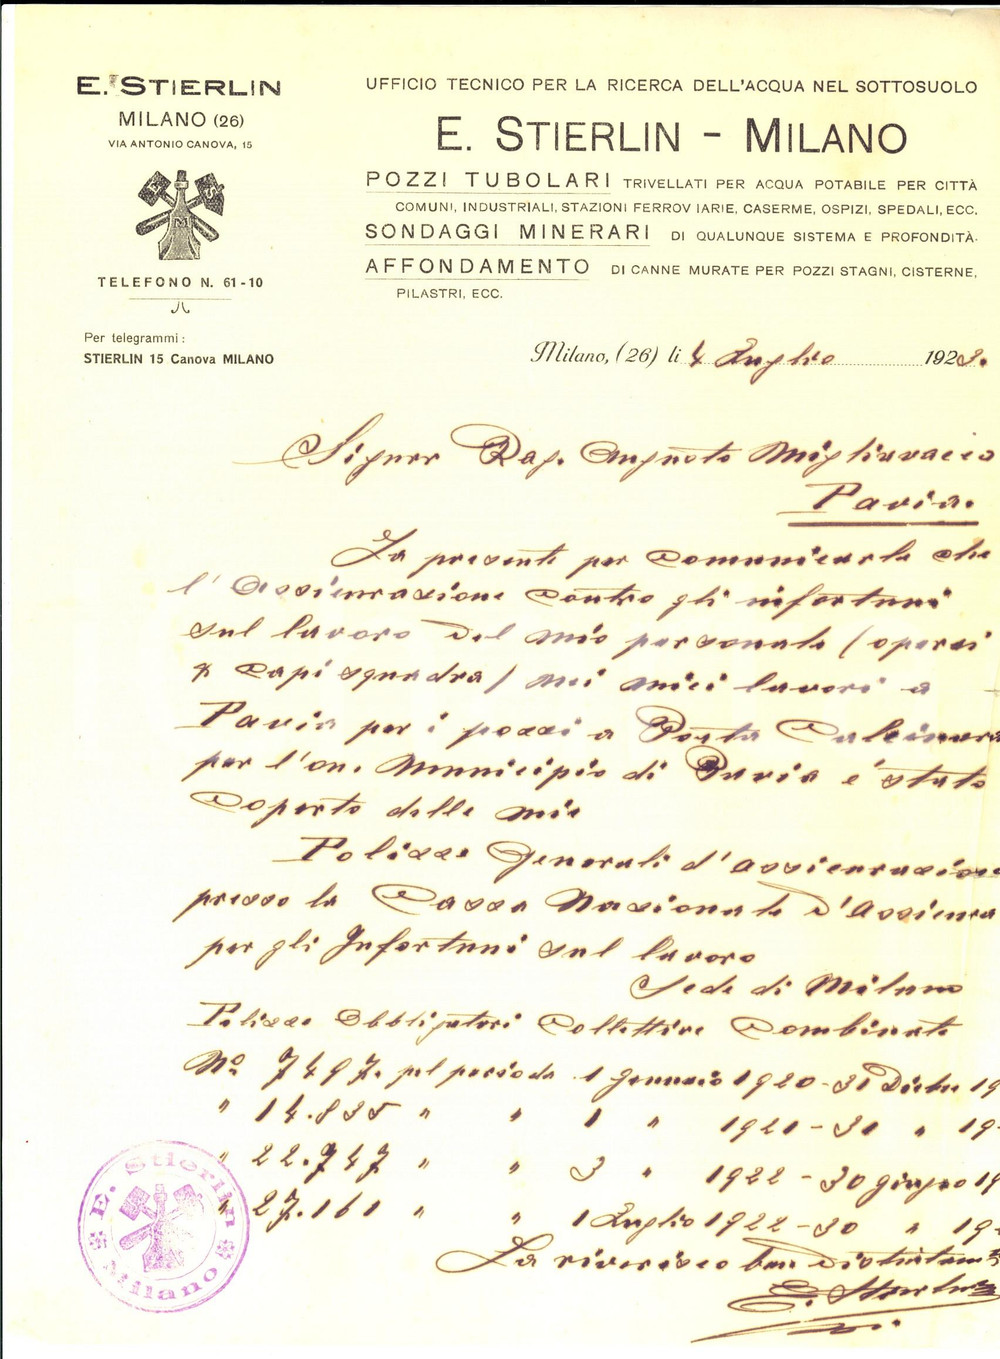 E. STIERLIN
MILANO (26)
VIA ANTONIO CANOVA, 15
TELEFONO N. 61-10
Per telegrammi:
STIERLIN 15 Canova MILANO
UFFICIO TECNICO PER LA RICERCA DELL'ACQUA NEL SOTTOSUOLO
E. STIERLIN - MILANO
POZZI TUBOLARI TRIVELLATI PER ACQUA POTABILE PER CITTÀ
COMUNI, INDUSTRIALI, STAZIONI FERROVIARIE, CASERME, OSPIZI, SPEDALI, ECC.
SONDAGGI MINERARI DI QUALUNQUE SISTEMA E PROFONDITÀ.
AFFONDAMENTO DI CANNE MURATE PER POZZI STAGNI, CISTERNE,
PILASTRI, ECC.
Milano, (26) li 4 Luglio 192
Signor Rag. Augusto Migliavacca
Pavia.
La presente per comunicarle che
l'Assicurazione contro gli infortuni
sul lavoro del mio personale (operai
& capi squadra) nei miei lavori a
Pavia per i pozzi a Porta Calcinara
per l'on. Municipio di Pavia é stato
coperto dalle mie
Polizze Generali d'assicurazione
presso la Cassa Nazionale d'Assicura
per gli Infortuni sul lavoro
Sede di Milano
Polizze Obbligatori Collettive Combinate
No. 7497. pel periodo 1 Gennaio 1920 - 31 Dicbre 19
" 14.835 " " 1 " 1921 - 31 " 19
" 22.747 " " 3 " 1922 - 30 giugno 19
" 27.161 " " 1 Luglio 1922 - 30 " 19
La riverisco ben distintamte
E. Stierlin
E. Stierlin
Milano